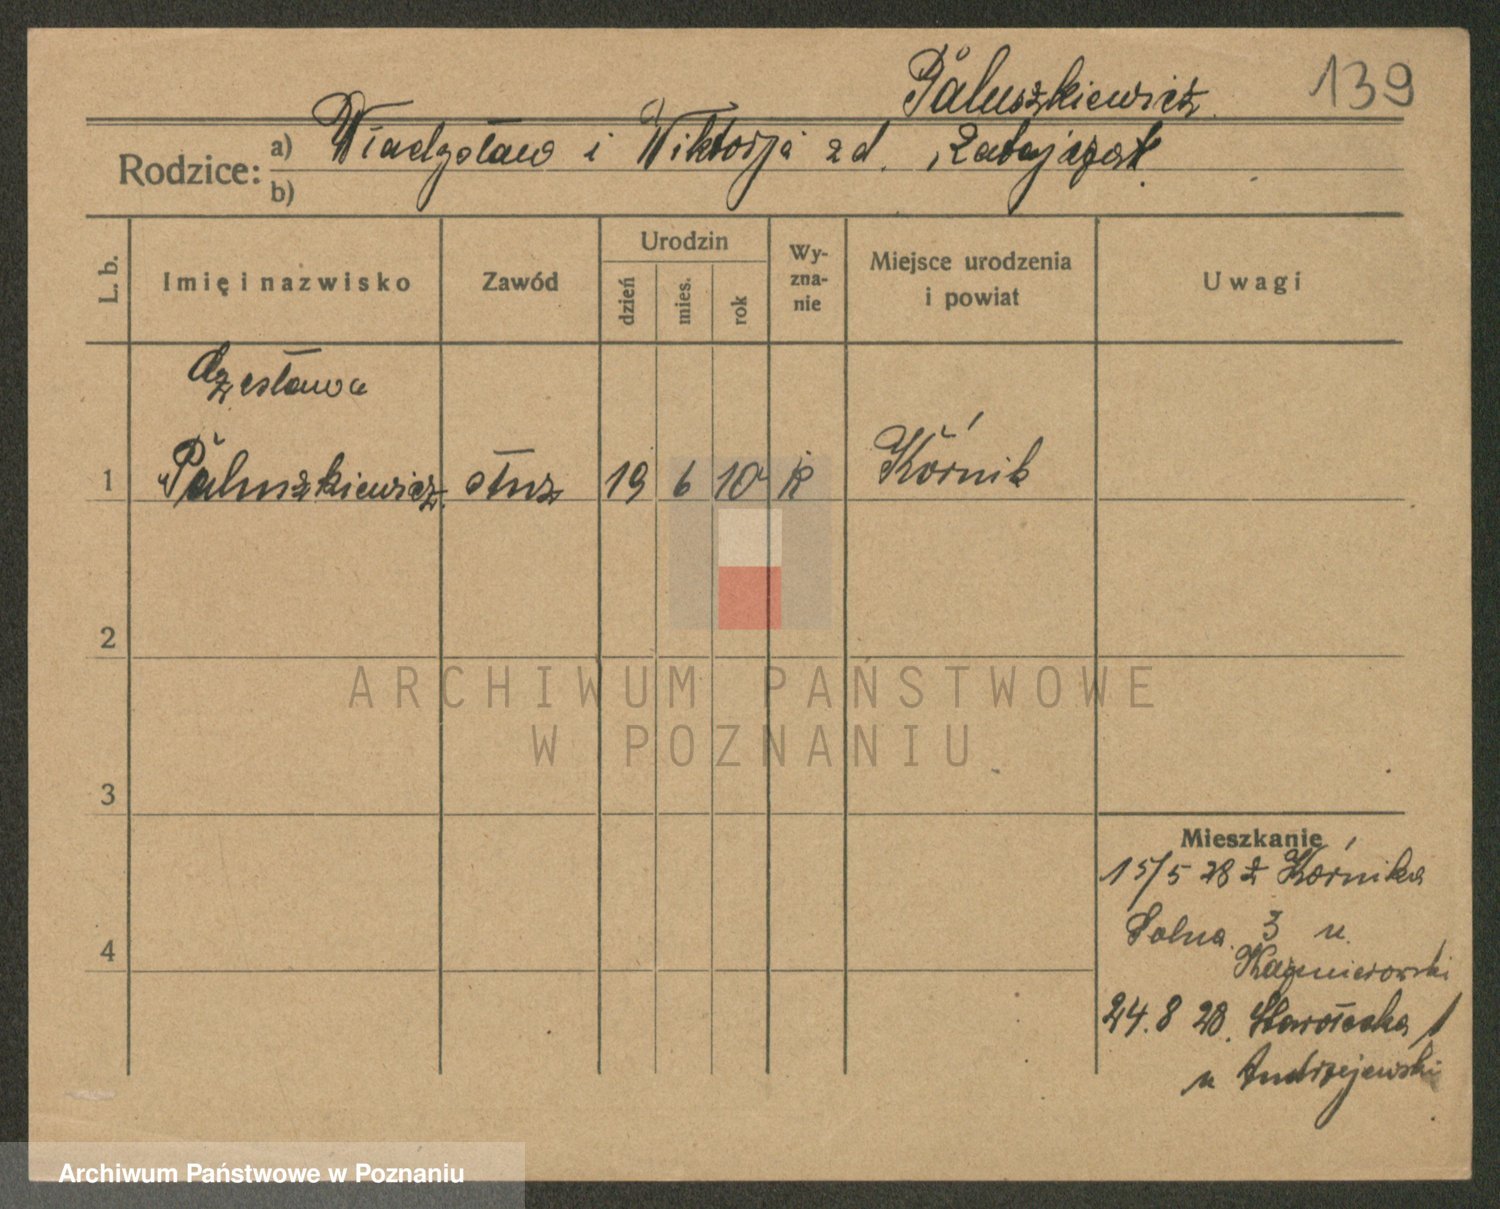 Paluszkiewicz 139
Rodzice: a) Władysław i Wiktorja zd. Ratajczak
b)
L. b. Imię i nazwisko Zawód Urodzin dzień mies. rok Wyznanie Miejsce urodzenia i powiat Uwagi
Czesława
1 Paluszkiewicz służ 19 6 10 k Kórnik
2
ARCHIWUM PAŃSTWOWE
W POZNANIU
3
Mieszkanie
15/5 28 z Kórnika
4 Solna 3 u
Kaźmierowski
24.8 28. Starołęcka 1
u Andrzejewski
Archiwum Państwowe w Poznaniu